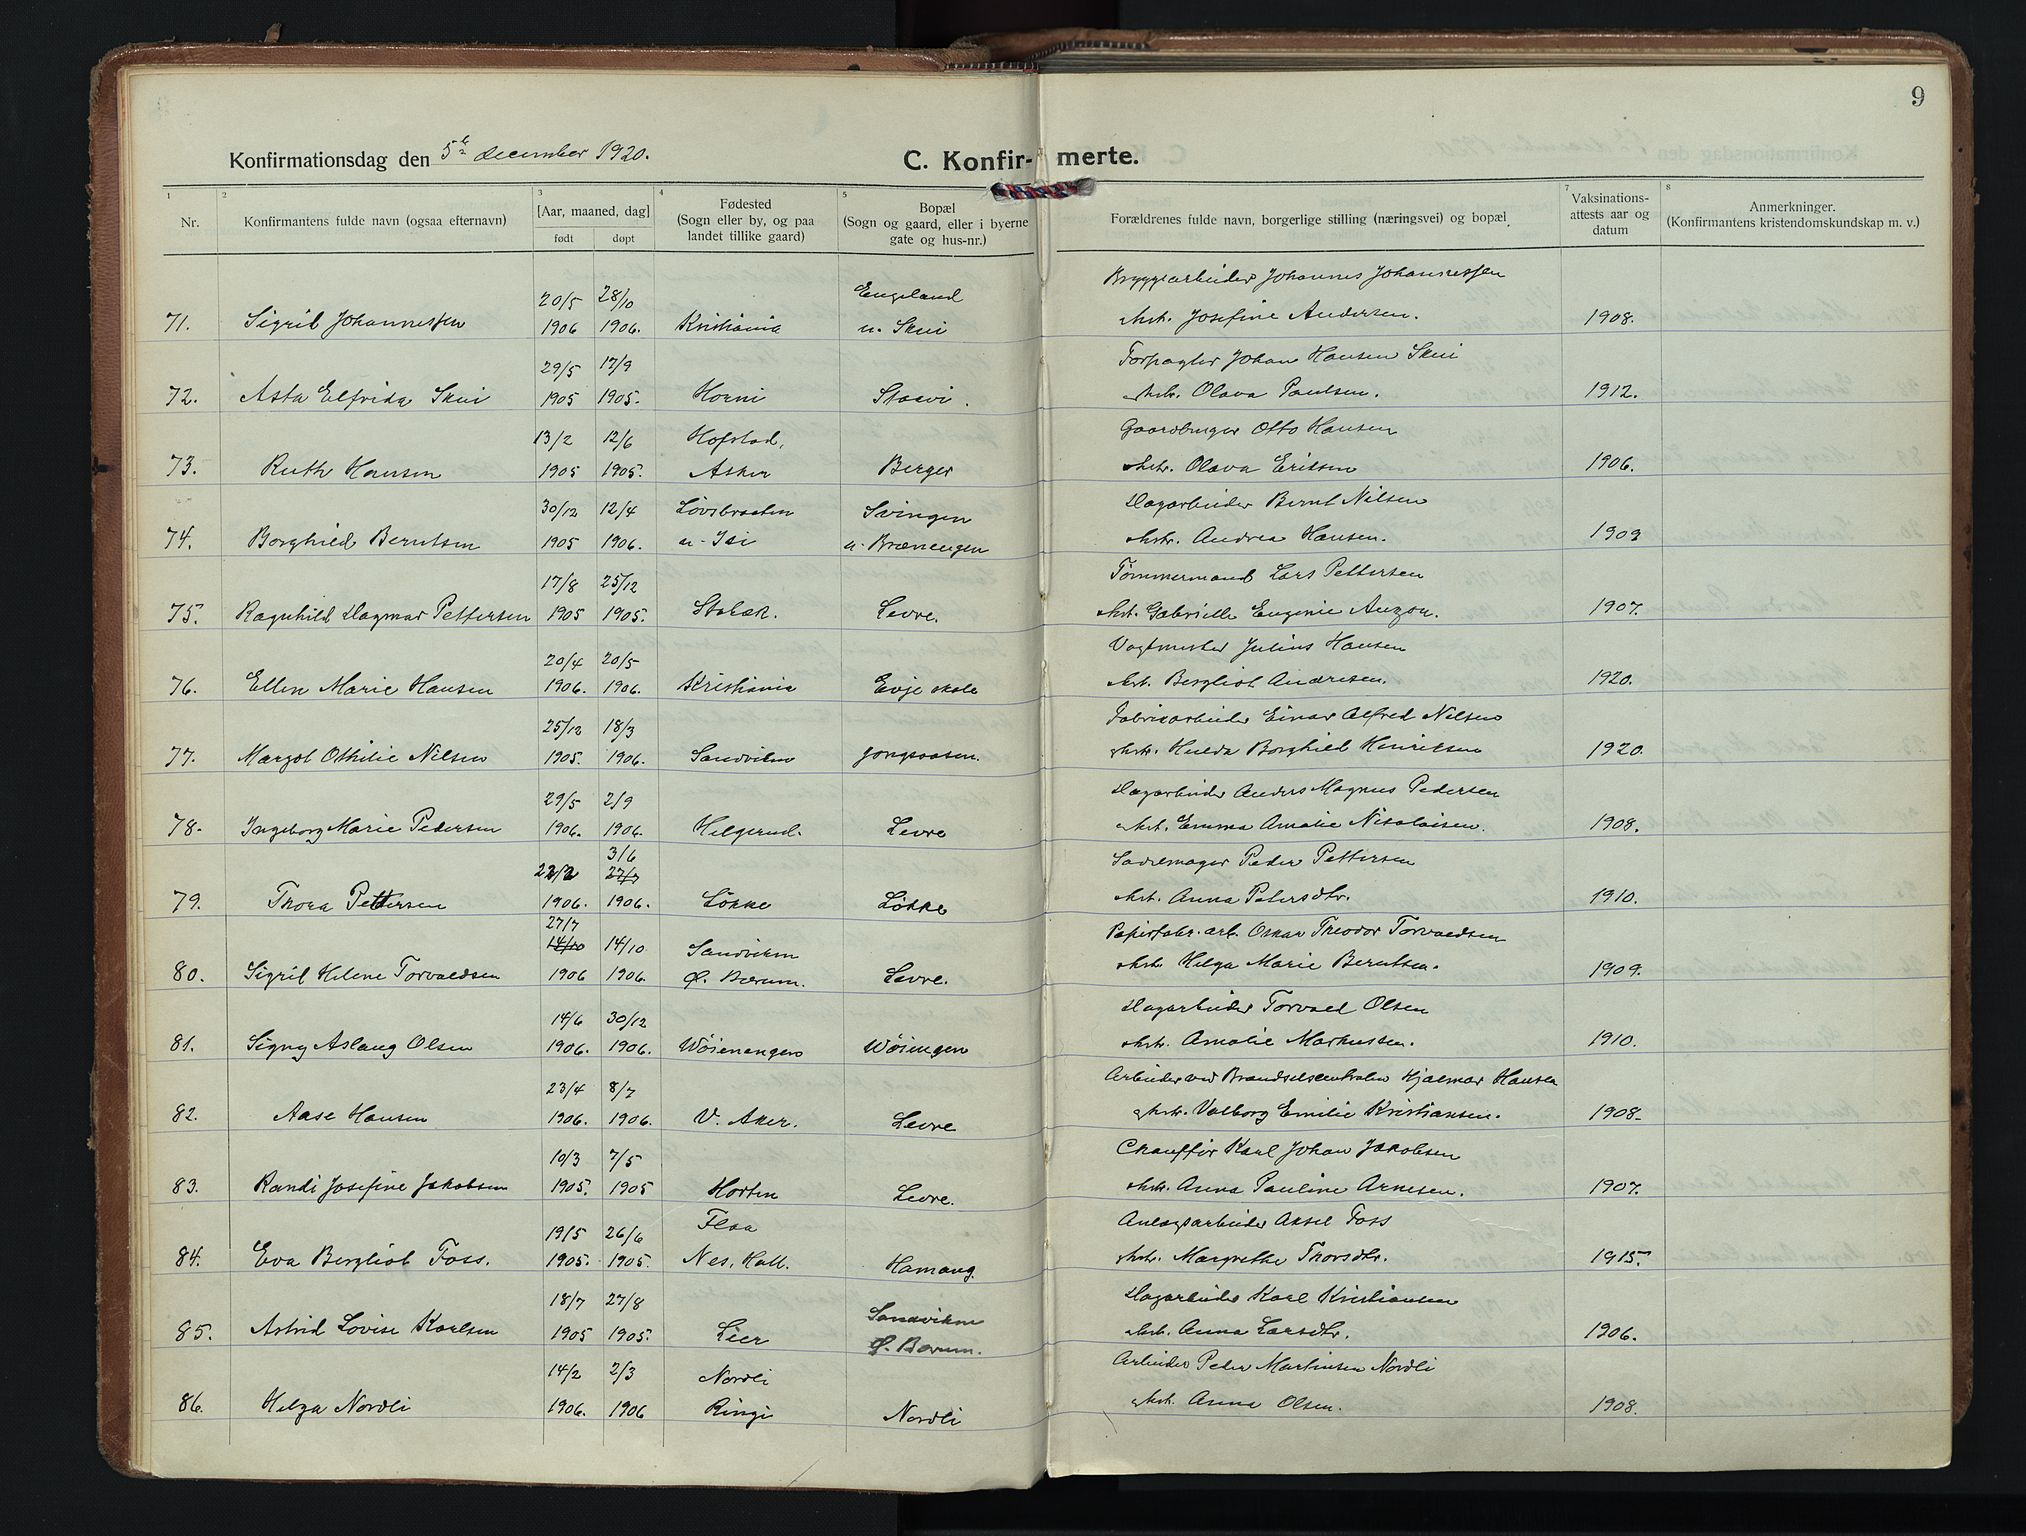 9
Konfirmationsdag den 5te december 1920.
C. Konfir-merte.
1 2 3 4 5 7 8
Nr.
Konfirmantens fulde navn (ogsaa efternavn)
[Aar, maaned, dag]
født døpt
Fødested
(Sogn eller by, og paa
landet tillike gaard)
Bopæl
(Sogn og gaard, eller i byerne
gate og hus-nr.)
Forældrenes fulde navn, borgerlige stilling (næringsvei) og bopæl
Vaksinations-
attests aar og
datum
Anmerkninger.
(Konfirmantens kristendomskundskap m. v.)
20/5 28/10 Engeland Bryggearbeider Johannes Johannessen
71. Sigrid Johannessen 1906 1906. Kristiania u. Skui Hstr. Josefine Andersen. 1908.
29/5 17/9 Forpagter Johan Hansen Skui
72. Asta Elfrida Skui 1905 1905. Horni Staavi. Hstr. Olava Paulsen. 1912.
13/2 12/6 Hofstad, Gaardbruger Otto Hansen
73. Ruth Hansen 1905 1905. Asker Berger Hstr. Olava Eriksen 1906.
30/12 12/4 Løvsbraaten Svingen Dagarbeider Bernt Nilsen
74. Borghild Berntsen 1905 1906. u. Isi u. Brænengen Hstr. Andrea Hansen. 1909
17/8 25/12 Tømmermand Lars Pettersen
75. Ragnhild Dagmar Pettersen 1905 1905. Stabæk. Levre. Hstr. Gabrielle Eugenie Auzon. 1907.
20/4 20/5 Vagtmester Julius Hansen
76. Ellen Marie Hansen 1906. 1906. Kristiania Evje skole Hstr. Bergliot Andresen. 1920.
25/12 18/3 Fabrikarbeider Einar Alfred Nilsen
77. Margot Othilie Nilsen 1905. 1906. Sandviken Jongsaasen. Hstr. Hulda Borghild Henriksen 1920.
29/5 2/9 Dagarbeider Anders Magnus Pedersen
78. Ingeborg Marie Pedersen 1906. 1906. Helgerud. Levre Hstr. Emma Amalie Nikolaisen. 1908.
3/6
22/2 27/7 Sadelmager Peder Pettersen
79. Thora Pettersen 1906. 1906. Løkke Løkke Hstr. Anna Petersdtr. 1910.
27/7
14/10 14/10 Sandviken Papirfabr. arb. Oskar Theodor Torvaldsen
80. Sigrid Helene Torvaldsen 1906 1906. Ø. Bærum. Levre. Hstr. Helga Marie Berntsen. 1909.
14/6 30/12 Dagarbeider Torvald Olsen
81. Signy Aslaug Olsen 1906. 1906. Wøienengen Wøiengen Hstr. Amalie Markussen. 1910.
23/4 8/7 Arbeider ved Brændselscentralen Hjalmar Hansen
82. Aase Hansen 1906. 1906. V. Aker. Levre Hstr. Valborg Emilie Kristiansen. 1908.
10/3 7/5 Chauffør Karl Johan Jakobsen
83. Randi Josefine Jakobsen 1905. 1905 Horten Levre. Hstr. Anna Pauline Arnesen. 1907.
19/5 26/6 Flaa Anlægsarbeider Aksel Foss
84. Eva Bergliot Foss. 1905. 1905. Nes, Hall. Hamang. Hstr. Margrethe Thorsdtr. 1915.
18/7 27/8 Sandviken Dagarbeider Karl Kristiansen
85. Astrid Lovise Karlsen 1905 1905. Lier Ø. Bærum. Hstr. Anna Larsdtr. 1906.
14/2 2/3 Nordli Arbeider Peder Martinsen Nordli
86. Helga Nordli 1906. 1906 Ringi Nordli Hstr. Anna Olsen. 1908.